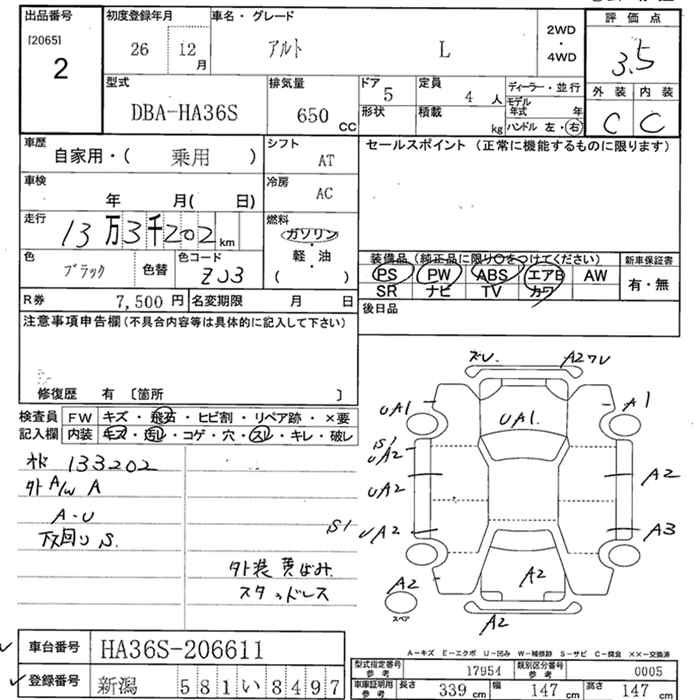 出品番号 初度登録年月 車名・グレード 評価点
[2065] 26 12月 アルト L 2WD・4WD 3.5
2
外装 内装
型式 排気量 ドア 定員 ディーラー・並行
DBA-HA36S 650 CC 5 4 人 モデル年式 年
形状 積載 kg ハンドル 左・右 C C
車歴 シフト セールスポイント (正常に機能するものに限ります)
自家用・( 乗用 ) AT
車検 冷房
年 月( 日) AC
走行 燃料
13万3千202 km ガソリン
軽・油
( )
色 色替 色コード
ブラック ZJ3
装備品 (純正品に限り○をつけてください) 新車保証書
PS PW ABS エアB AW 有・無
SR ナビ TV カワ
R券 7,500 円 名変期限 月 日 後日品
注意事項申告欄(不具合内容等は具体的に記入して下さい)
修復歴 有 〔箇所 〕
検査員 FW キズ・飛石・ヒビ割・リペア跡・×要
記入欄 内装 キズ・汚レ・コゲ・穴・スレ・キレ・破レ
133202
外A/W A
A-U
下回りS.
外装黄ばみ
スタッドレス
ズレ A2ワレ
UA1 UA1. A1
S1
UA2
UA2 A2
S1 UA2 A3
A2 A2
スペア
A2
A-キズ E-エクボ U-凹み W-補修跡 S-サビ C-腐食 ××-交換済
車台番号 HA36S-206611
登録番号 新潟 581い8497
型式指定番号 参考 17954 類別区分番号 参考 0005
車庫証明用 参考 長さ 339 cm 幅 147 cm 高さ 147 cm